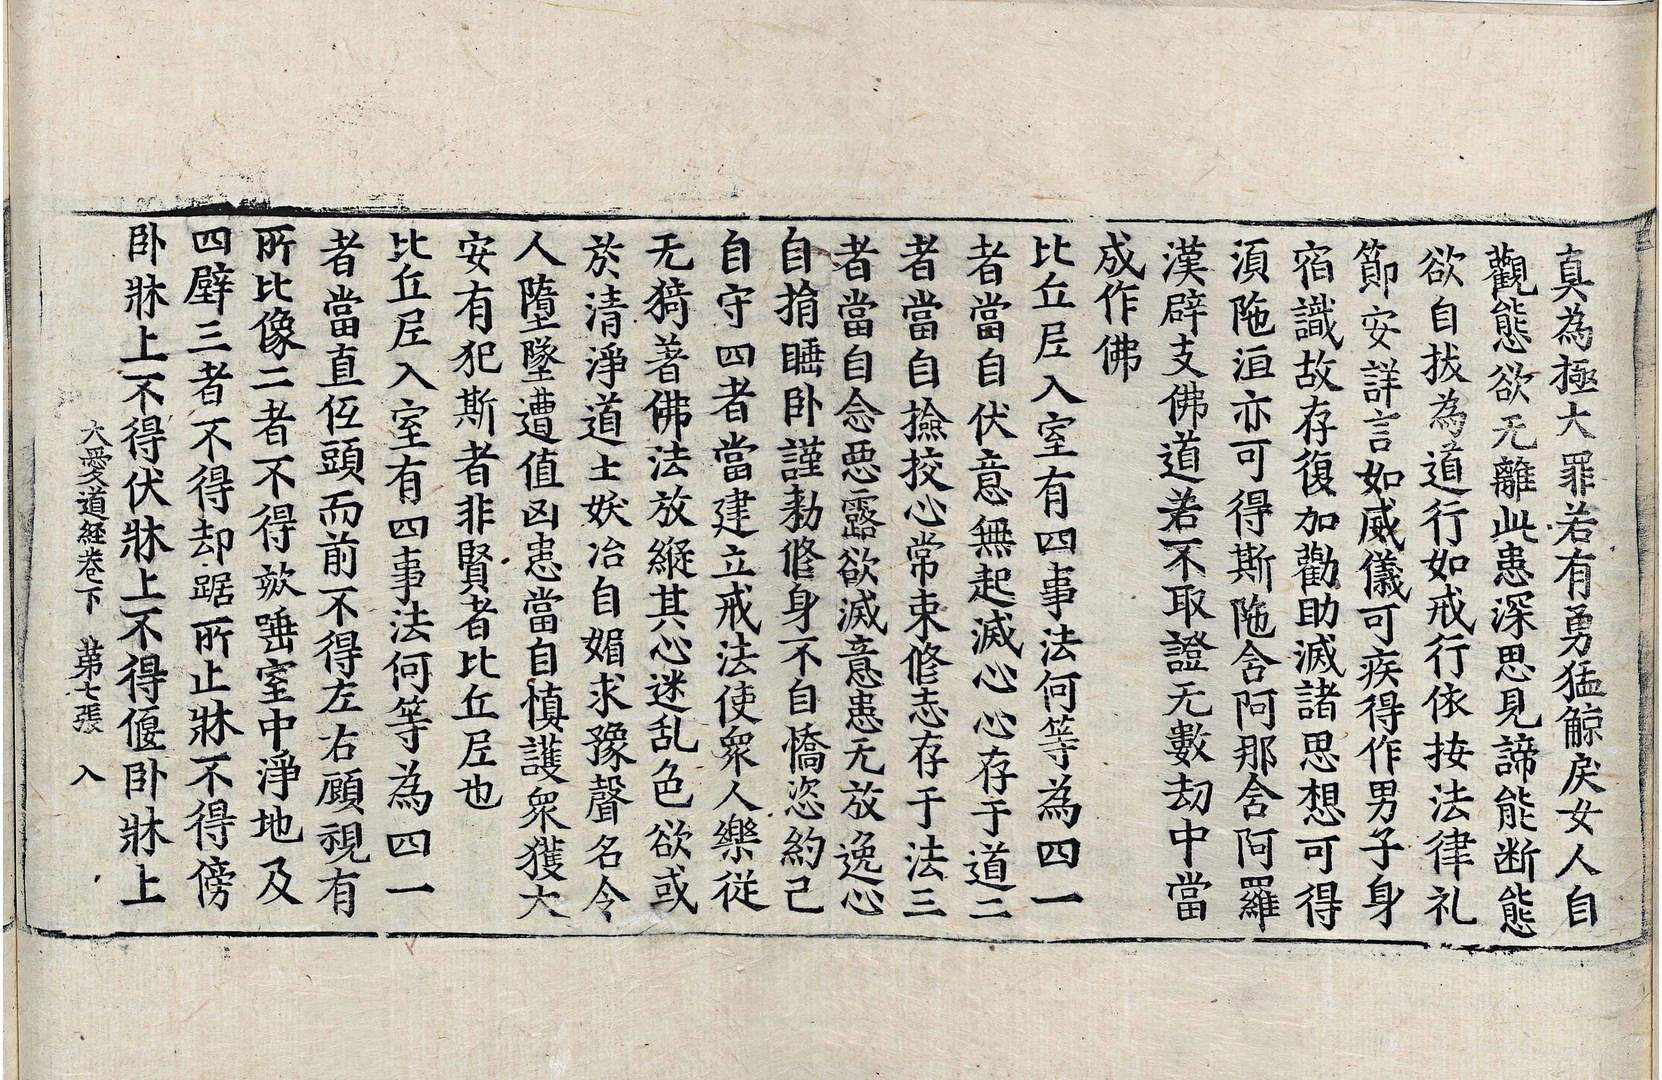 真為極大罪若有勇猛鯨戾女人自
觀態欲无離此患深思見諦能断態
欲自拔為道行如戒行依按法律礼
節安詳言如威儀可疾得作男子身
宿識故存復加勸助滅諸思想可得
湏陁洹亦可得斯陁含阿那含阿羅
漢辟支佛道若不取證无數劫中當
成作佛
比丘尼入室有四事法何等為四一
者當自伏意無起滅心心存于道二
者當自撿挍心常束修志存于法三
者當自念惡露欲滅意患无放逸心
自捐睡卧謹勑修身不自憍恣約己
自守四者當建立戒法使衆人樂従
无猗著佛法放縱其心迷乱色欲或
於清淨道士妖冶自媚求豫聲名令
人墮墜遭值凶恚當自慎護衆獲大
安有犯斯者非賢者比丘尼也
比丘尼入室有四事法何等為四一
者當直伍頭而前不得左右顧視有
所比像二者不得欬唾室中淨地及
四壁三者不得却踞所止牀不得傍
卧牀上不得伏牀上不得偃卧牀上
大愛道經卷下 苐七張 入